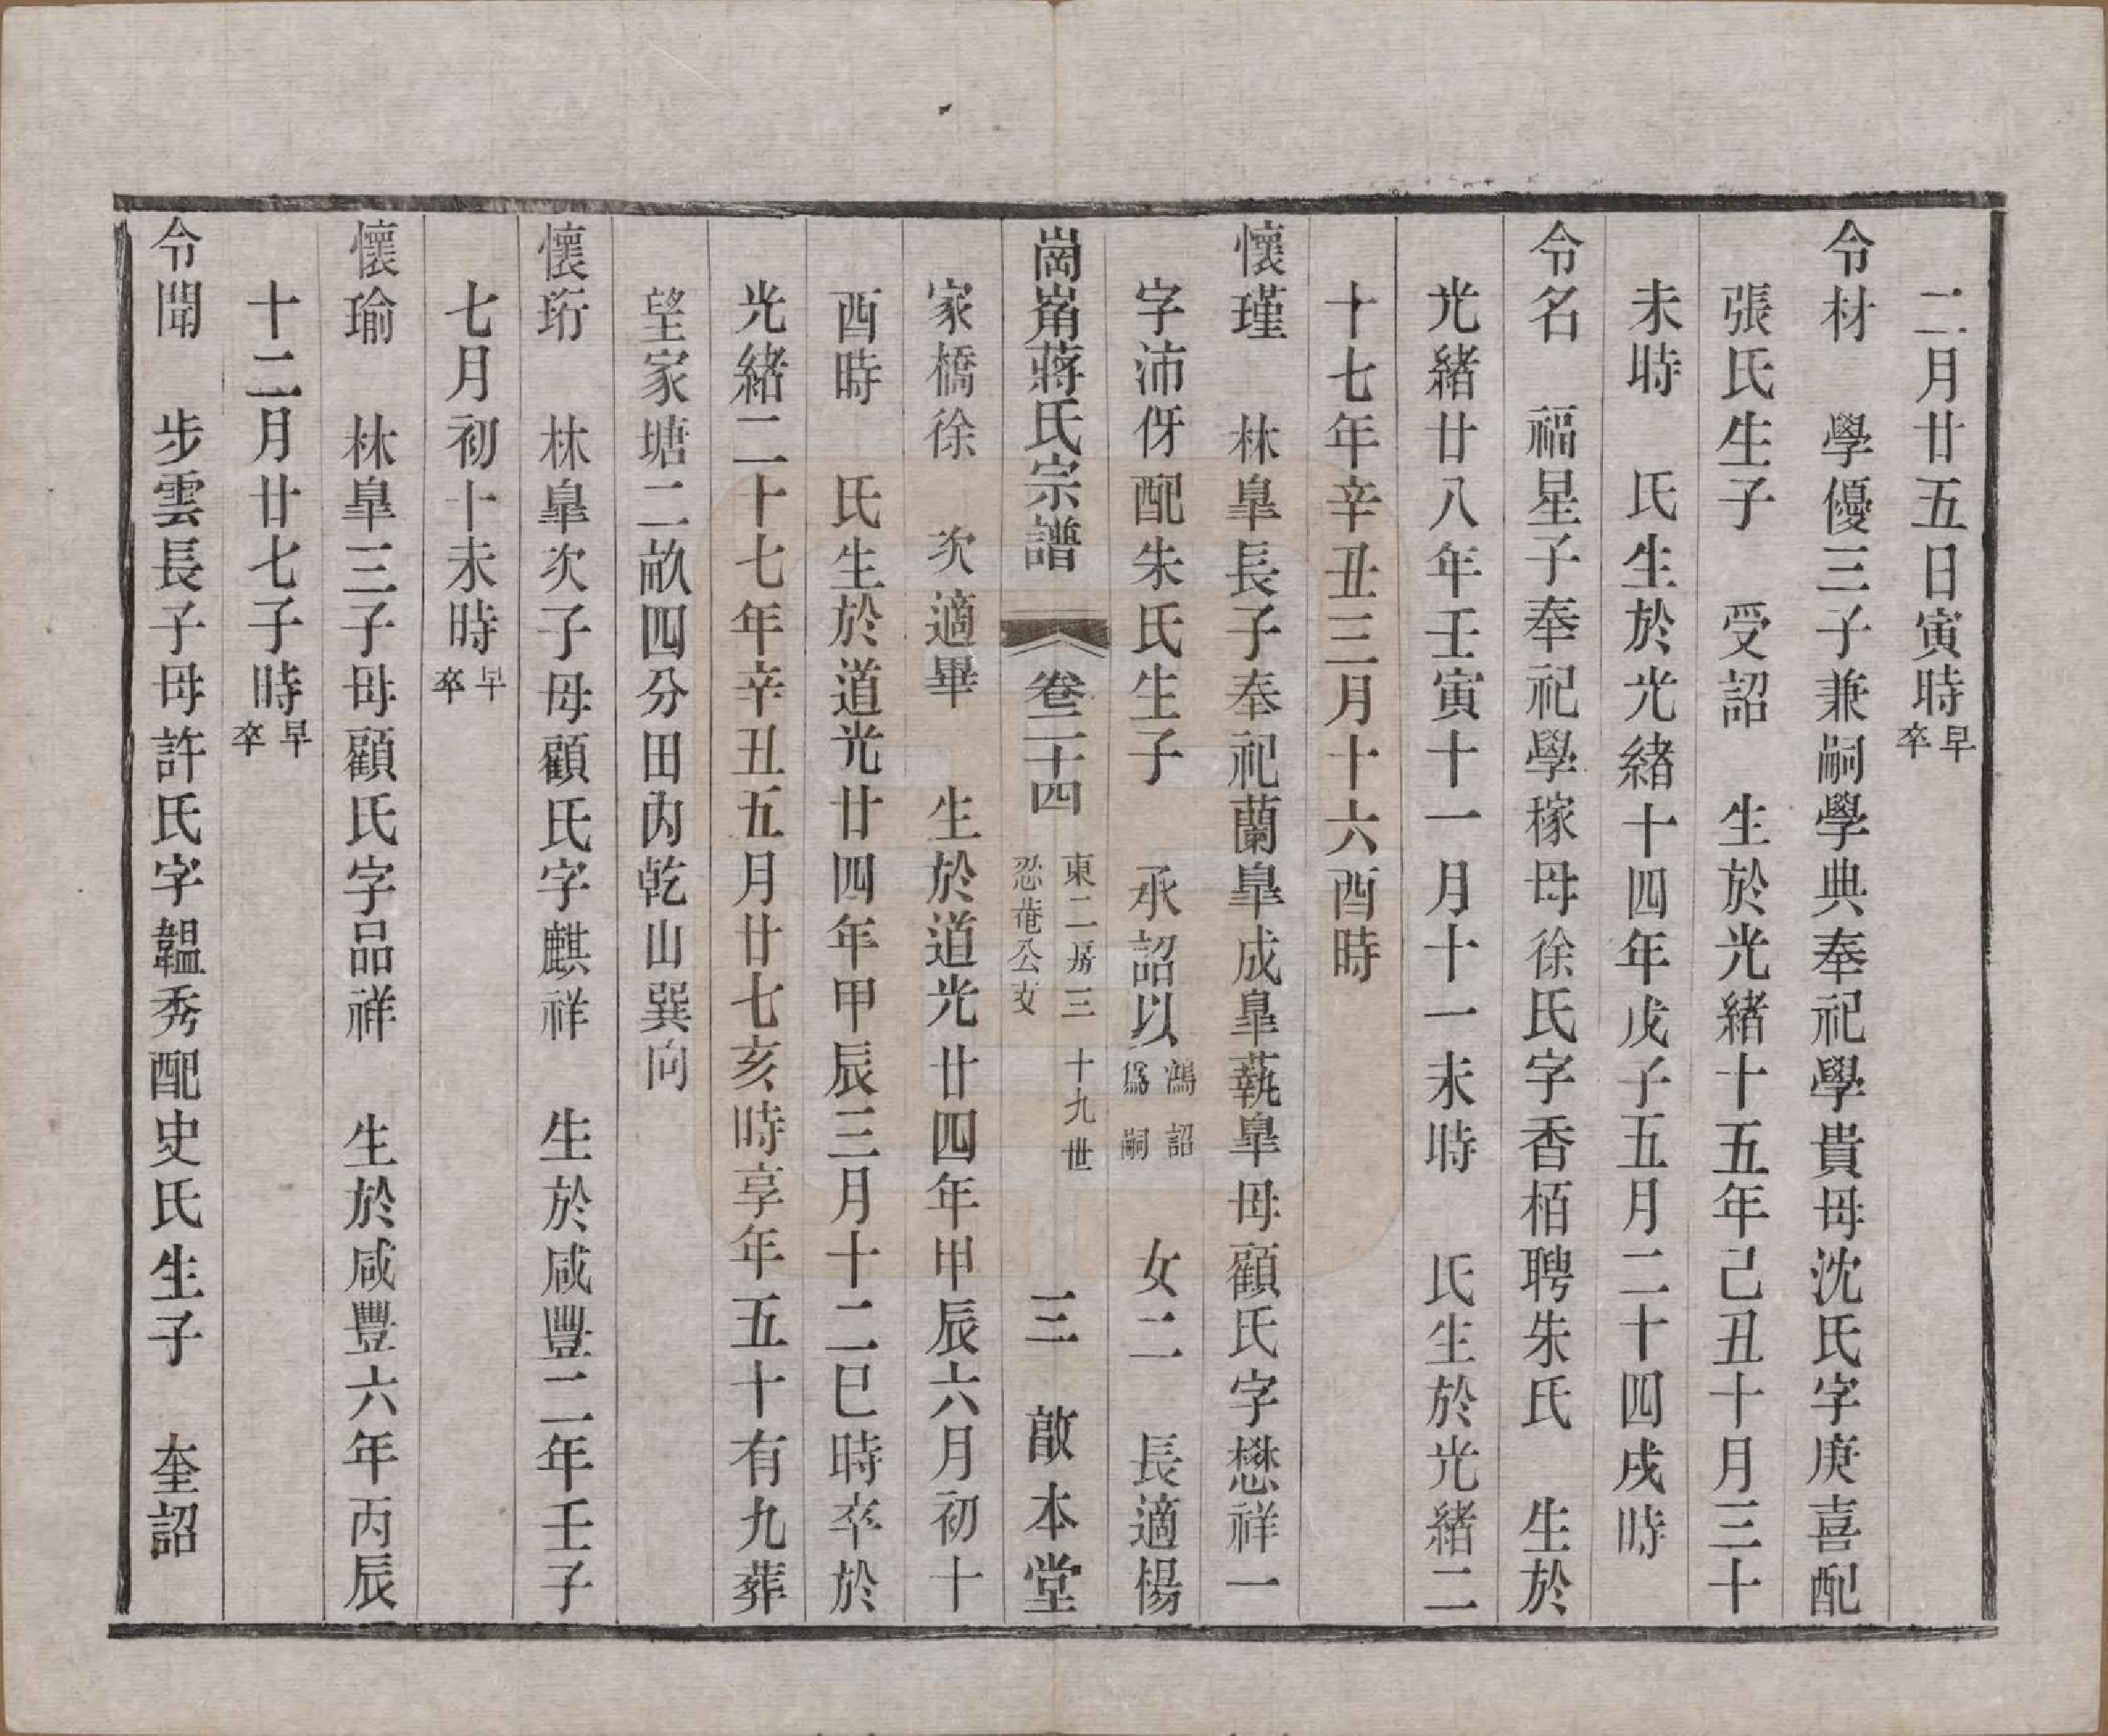 二月廿五日寅時早卒
令材　學優三子兼嗣學典奉祀學貴母沈氏字庚喜配
張氏生子　受詔　生於光緒十五年己丑十月三十
未時　氏生於光緒十四年戊子五月二十四戌時
令名　福星子奉祀學稼母徐氏字香栢聘朱氏　生於
光緒廿八年壬寅十一月十一未時　氏生於光緒二
十七年辛丑三月十六酉時
懷瑾　林臯長子奉祀蘭臯成臯蓺臯母顧氏字懋祥一
字沛伢配朱氏生子　承詔以鴻詔爲嗣　女二　長適楊
崗崙蔣氏宗譜　卷二十四　東二房三忍菴公支　十九世　三　啟本堂
家橋徐　次適畢　生於道光廿四年甲辰六月初十
酉時　氏生於道光廿四年甲辰三月十二巳時卒於
光緒二十七年辛丑五月廿七亥時享年五十有九葬
望家塘二畝四分田內乾山巽向
懷珩　林臯次子母顧氏字麒祥　生於咸豐二年壬子
七月初十未時早卒
懷瑜　林臯三子母顧氏字品祥　生於咸豐六年丙辰
十二月廿七子時早卒
令聞　步雲長子母許氏字韞秀配史氏生子　奎詔